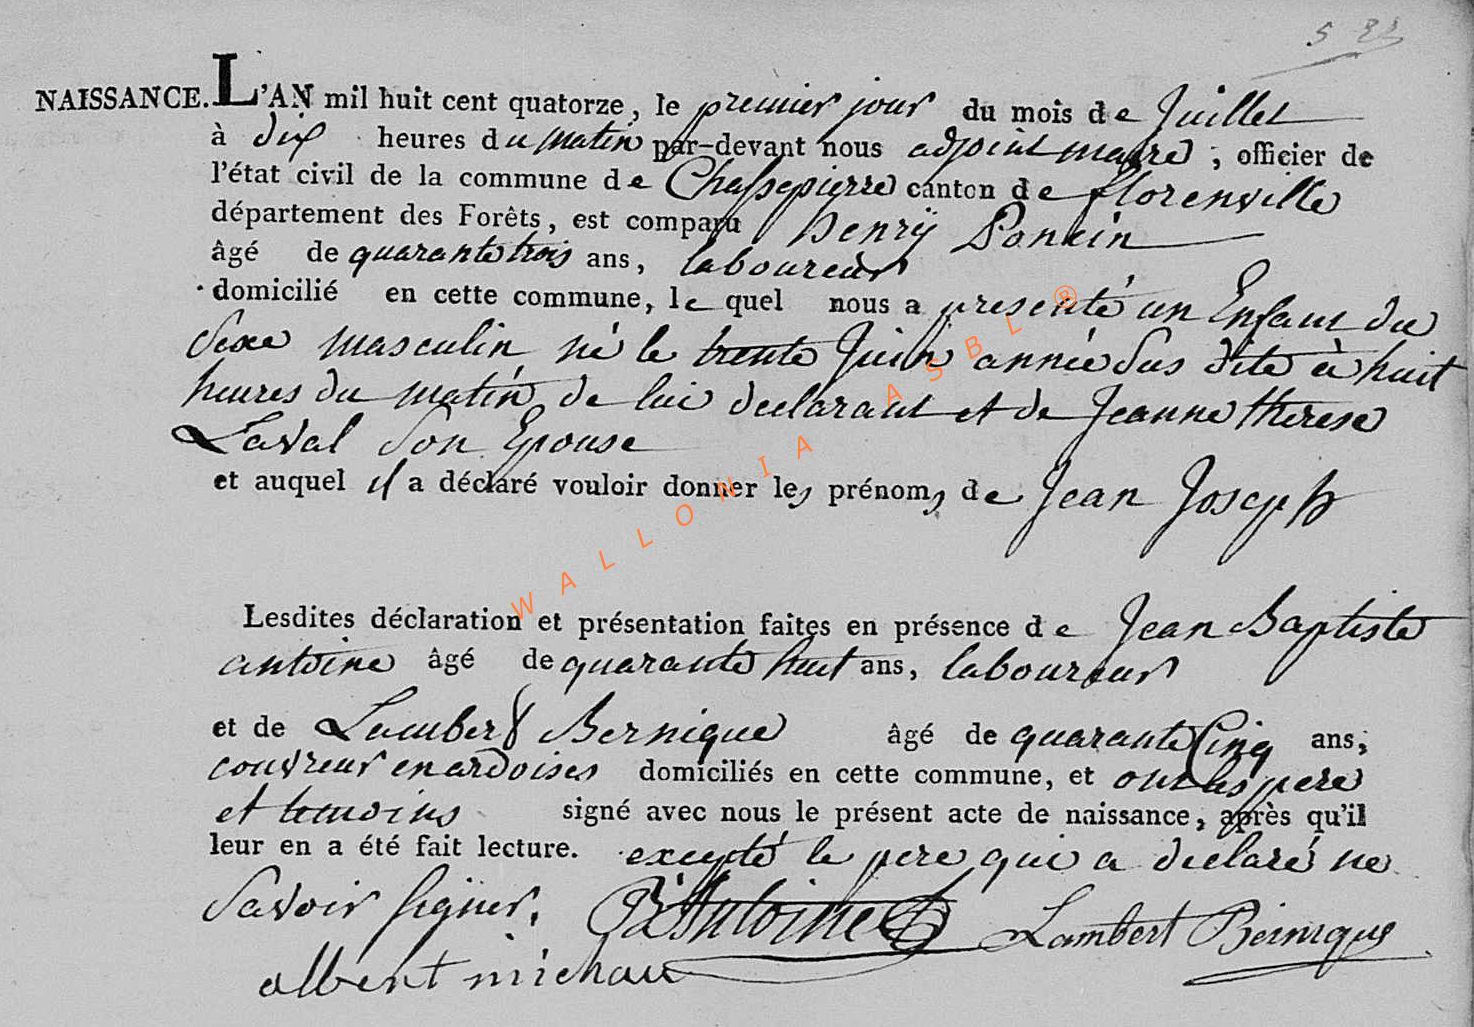 5 22
NAISSANCE. L'AN mil huit cent quatorze, le premier jour du mois de Juillet
à dix heures du matin par-devant nous adjoint maire, officier de
l'état civil de la commune de Chassepierre canton de florenville
département des Forêts, est comparu henrÿ Poncin
âgé de quarante trois ans, laboureur
domicilié en cette commune, le quel nous a presenté un Enfant du
Sexe masculin né le trente Juin année Sus dite à huit
heures du matin de lui declarant et de Jeanne therese
Laval Son Epouse
et auquel il a déclaré vouloir donner les prénoms de Jean Joseph
Lesdites déclaration et présentation faites en présence de Jean Baptiste
antoine âgé de quarante huit ans, laboureur
et de Lambert Bernique âgé de quarante Cinq ans,
couvreur en ardoises domiciliés en cette commune, et ont les pere
et temoins signé avec nous le présent acte de naissance, après qu'il
leur en a été fait lecture. excepté le pere qui a declaré ne
Savoir Signer.
Antoine Lambert Bernique
albert michau
WALLONIA ASBL ®